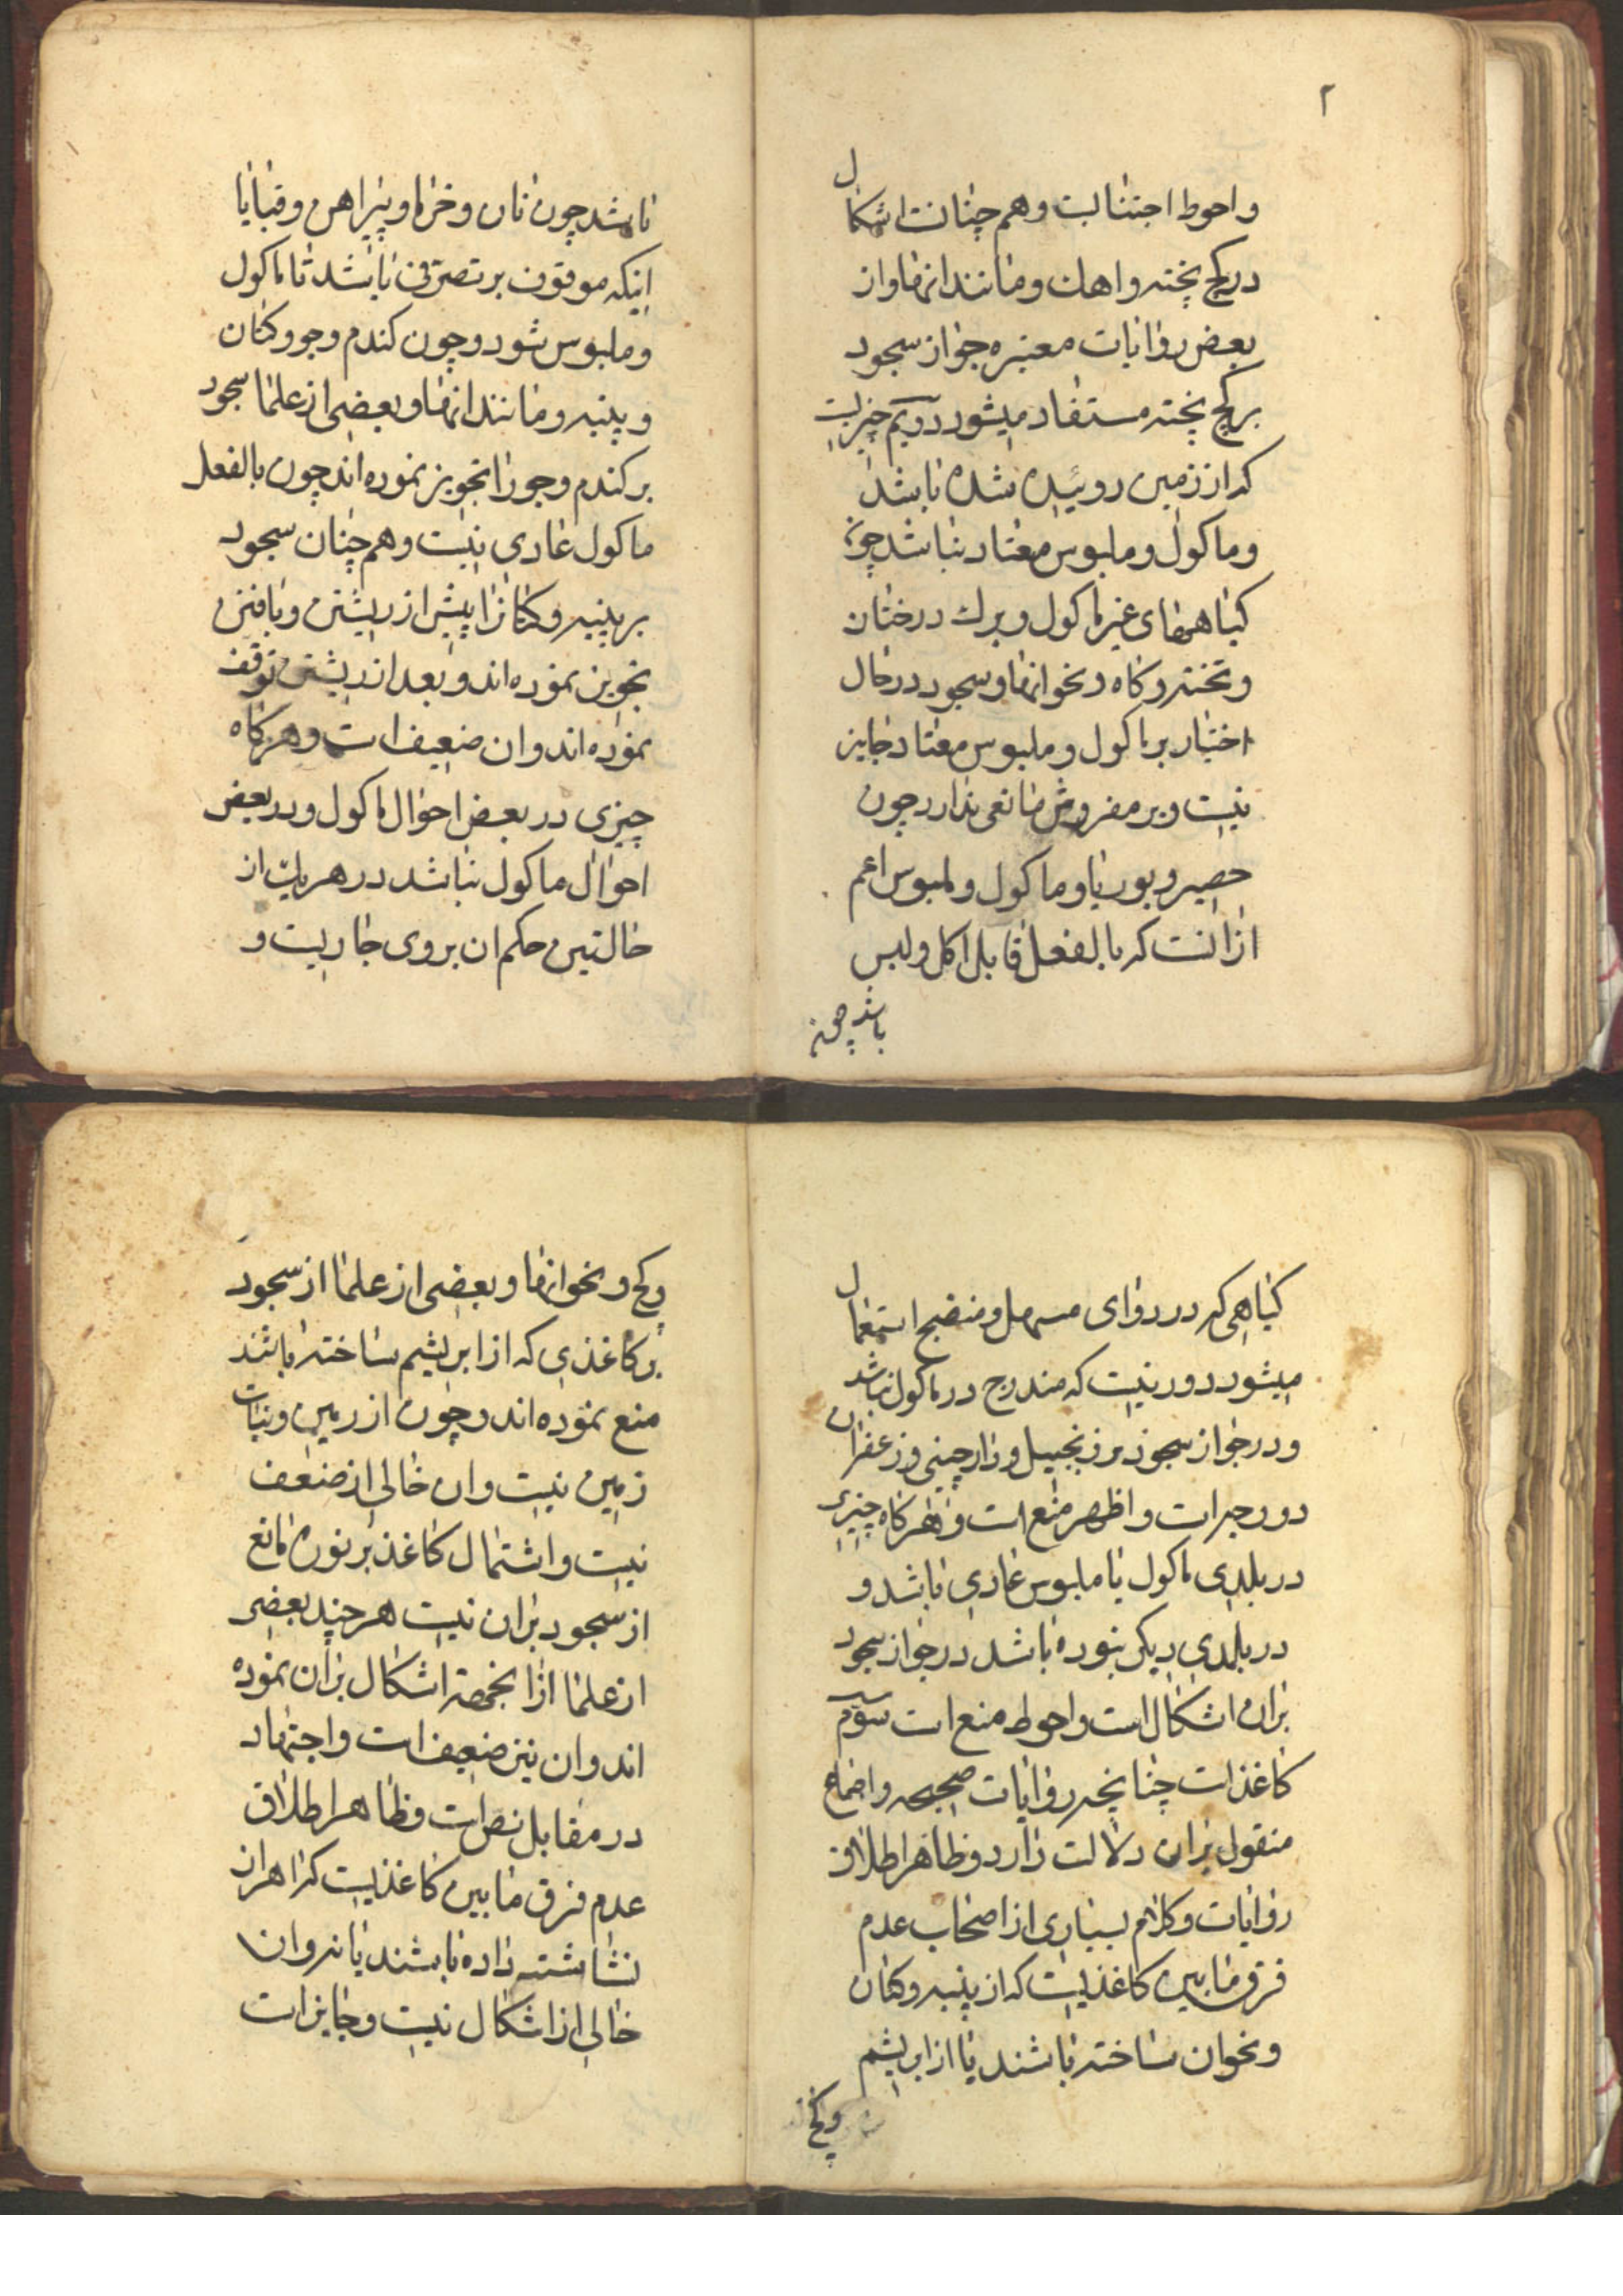 ۲
واحوط اجتنابست وهم چنانست اشکال
در کج پخته واهك ومانند انها واز
بعض روایات معتبره جواز سجود
بر کج پخته مستفاد میشود دویم چیزیست
که از زمین روئیده شده باشد
وماکول وملبوس معتاد نباشد چون
کیاههای غیر ماکول وبرك درختان
وتخته وکاه ونحو انها وسجود در حال
اختیار بر ماکول وملبوس معتاد جایز
نیست وبر مفروش مانعی ندارد چون
حصیر وبوریا وماکول وملبوس اعم
از انست که بالفعل قابل اکل ولبس
باشد چون
باشد چون نان وخرما وپیراهن وقبا یا
اینکه موقوف بر تصرفی باشد تا ماکول
وملبوس شود وچون کندم وجو وکتان
وپنبه ومانند انها وبعضی از علما سجود
بر کندم وجو را تجویز نموده اند چون بالفعل
ماکول عادی نیست وهم چنان سجود
بر پنبه وکتانرا پیش از ریشتن وبافتن
تجویز نموده اند وبعد از ریشتن توقف
نموده اند وان ضعیف است وهرکاه
چیزی در بعض احوال ماکول ودر بعض
احوال ماکول نباشد در هر یك از
حالتین حکم ان بر وی جاریست و
کیاهی که در دوای مسهل ومنضج استعمال
میشود دور نیست که مندرج در ماکول نباشد
ودر جواز سجود بر زنجبیل ودارچینی وزعفران
دو وجه است واظهر منع است وهرکاه چیزی
در بلدی ماکول یا ملبوس عادی باشد و
در بلدی دیکر نبوده باشد در جواز سجود
بران اشکال است واحوط منع است سوم
کاغذ است چنانچه روایات صحیحه واجماع
منقول بران دلالت دارد وظاهر اطلاق
روایات وکلام بسیاری از اصحاب عدم
فرق مابین کاغذیست که از پنبه وکتان
ونحوان ساخته باشند یا از ابریشم
وکج
وکج ونحو انها وبعضی از علما از سجود
بر کاغذی که از ابریشم ساخته باشند
منع نموده اند وچون از زمین ونبات
زمین نیست وان خالی از ضعف
نیست واشتمال کاغذ بر نوره مانع
از سجود بران نیست هر چند بعضی
از علما از انجهة اشکال بران نموده
اند وان نیز ضعیف است واجتهاد
در مقابل نص است وظاهر اطلاق
عدم فرق مابین کاغذیست که اهار از
نشاشته داده باشند یا نه وان
خالی از اشکال نیست وجایز است